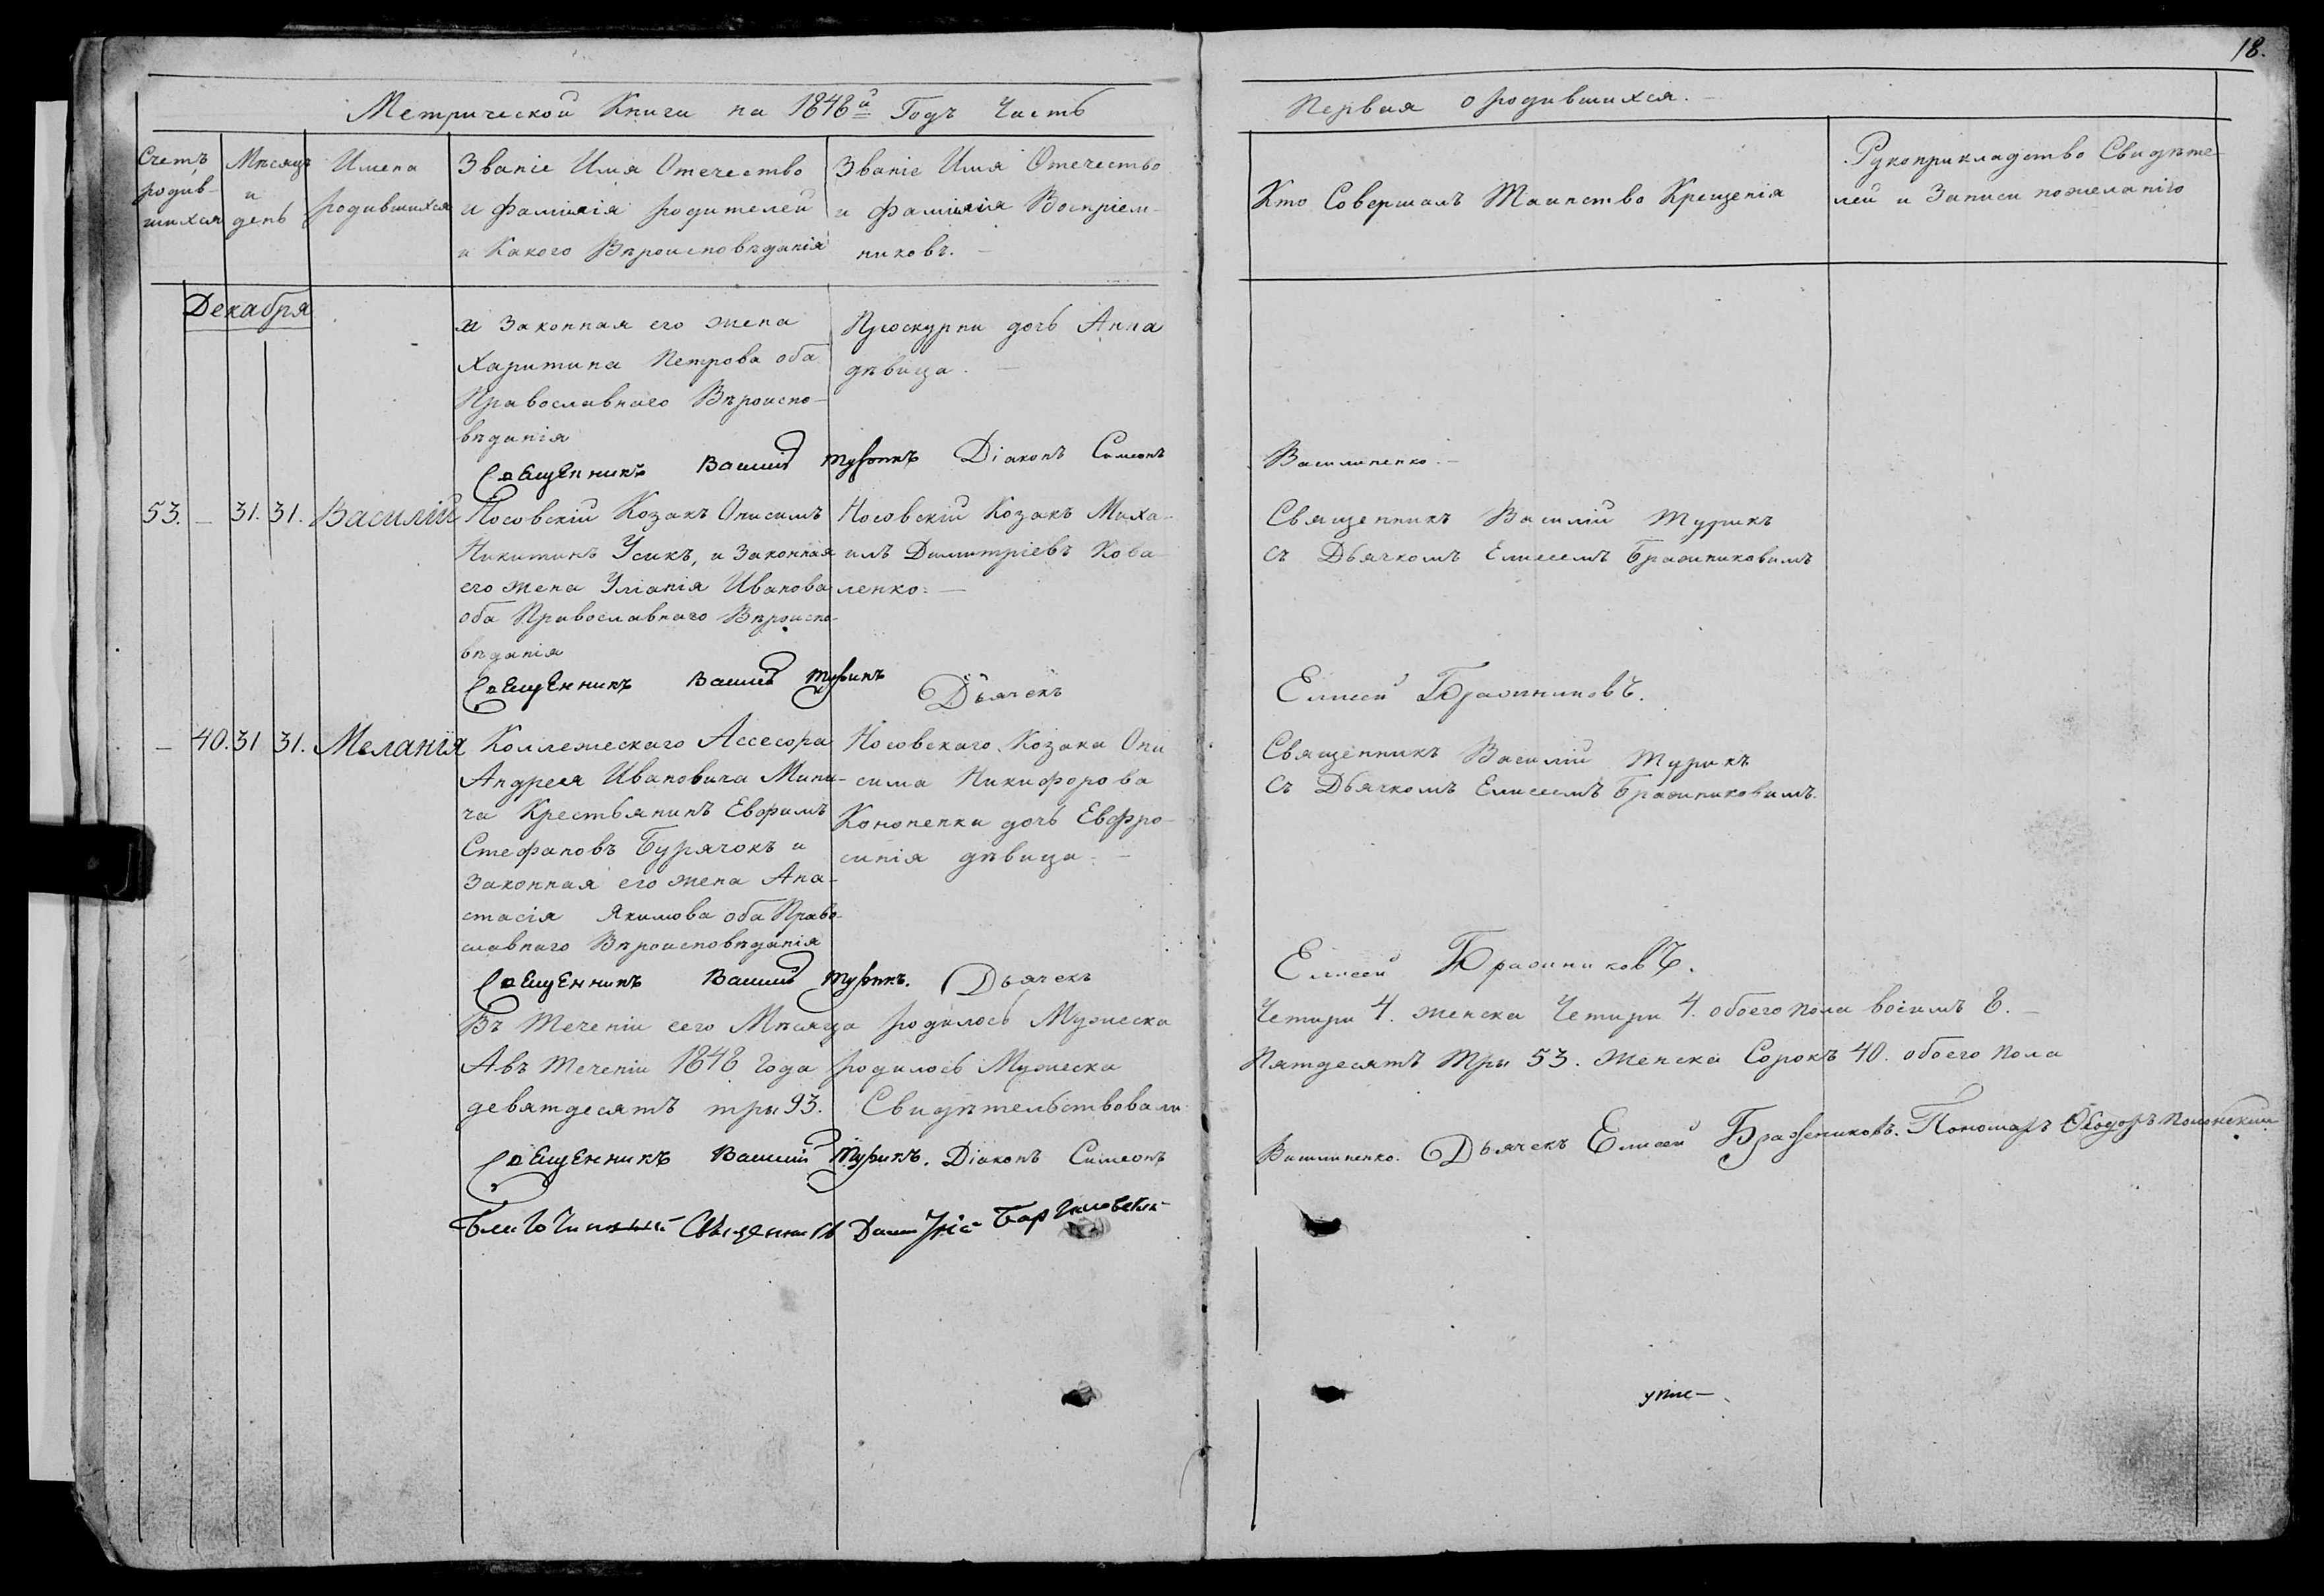 18.
Метрической Книги на 1848й Годъ Часть
Первая о родившихся.
Счетъ родив-шихся
Мѣсяцъ и день
Имена родившихся
Званіе Имя Отечество
и Фамилія родителей
и Какого Вѣроисповѣданія
Званіе Имя Отечество
и Фамилія Воспріем-
никовъ.
Кто Совершалъ Таинство Крещенія
Рукоприкладство Свидѣте-
лей и Записи пожеланію
Декабря
и Законная его жена
Харитина Петрова оба
Православнаго Вѣроиспо-
вѣданія
Проскурни дочь Анна
дѣвица.
Священникъ Василій Турикъ Діаконъ Симеонъ
Василиненко.
53. – 31. 31. Василій
Носовскій Козакъ Онисимъ
Никитинъ Усикъ, и Законная
его жена Уліанія Иванова
оба Православнаго Вѣроиспо-
вѣданія
Носовскій Козакъ Миха-
илъ Димитріевъ Кова-
ленко.
Священникъ Василій Турикъ
съ Дьячкомъ Елисеемъ Бражниковимъ
Священникъ Василій Турикъ Дьячекъ
Елисей Бражниковъ.
– 40. 31 31. Меланія
Коллежескаго Ассесора
Андрея Ивановича Мини-
ча Крестьянинъ Евфимъ
Стефановъ Бурячокъ и
Законная его жена Ана-
стасія Якимова оба Право-
славнаго Вѣроисповѣданія
Носовскаго Козака Они
сима Никифорова
Кононенки дочь Евфро-
синія дѣвица.
Священникъ Василій Турикъ
съ Дьячкомъ Елисеемъ Бражниковимъ.
Священникъ Василій Турикъ. Дьячекъ
Елисей Бражниковъ.
Въ Теченіи сего Мѣсяца родилось Мужеска
Четири 4. женска Четири 4. обоего пола восимъ 8.
А въ Теченіи 1848 Года родилось Мужеска
Пятдесятъ Три 53. Женска Сорокъ 40. обоего пола
девятдесятъ три 93. Свидѣтельствовали
Священникъ Василій Турикъ. Діаконъ Симеонъ
Василиненко. Дьячекъ Елисей Бражниковъ. Пономарь Ѳеодоръ Полонскій
Благочинный Священникъ Димитрій